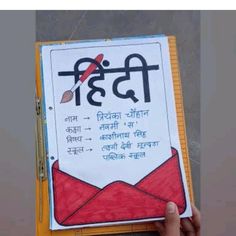 हिंदी
नाम → प्रियंका चौहान
कक्षा → नवमी 'स'
विषय → काशीनाथ सिंह
स्कूल → लक्ष्मी देवी मून्दड़ा
पब्लिक स्कूल